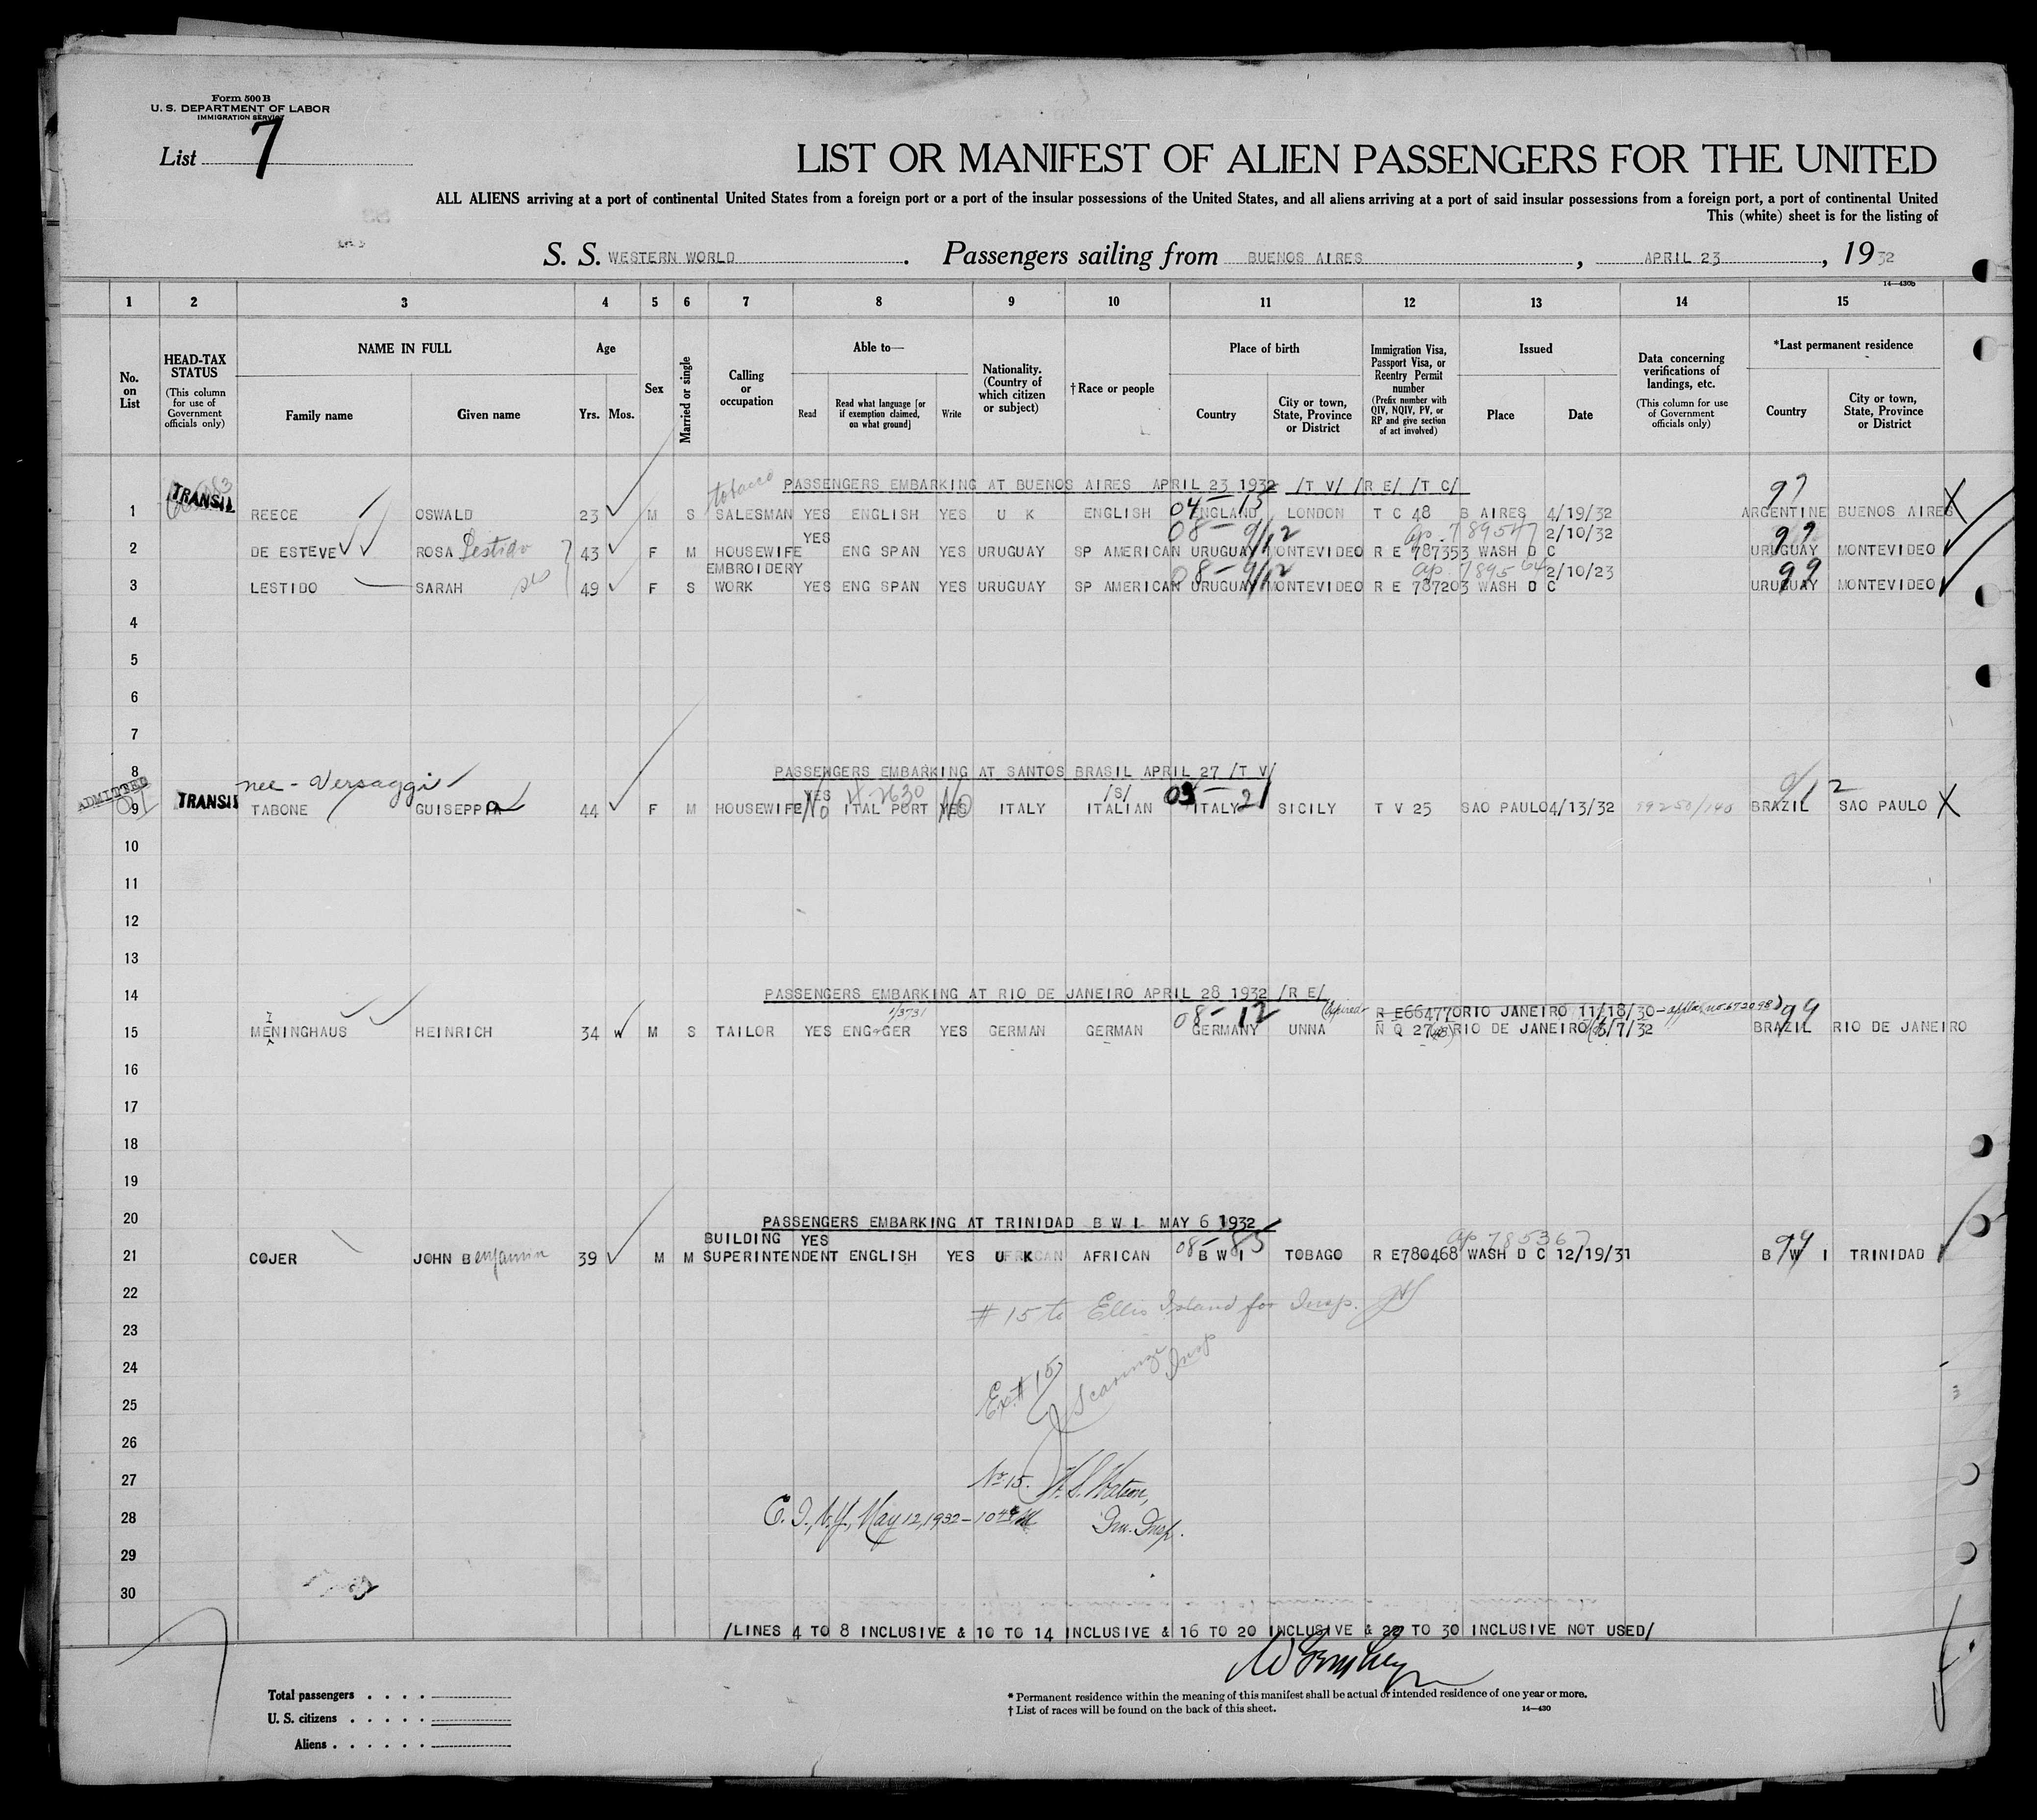 Form 500 B
U. S. DEPARTMENT OF LABOR
IMMIGRATION SERVICE
List 7
LIST OR MANIFEST OF ALIEN PASSENGERS FOR THE UNITED
ALL ALIENS arriving at a port of continental United States from a foreign port or a port of the insular possessions of the United States, and all aliens arriving at a port of said insular possessions from a foreign port, a port of continental United
This (white) sheet is for the listing of
S. S. WESTERN WORLD. Passengers sailing from BUENOS AIRES, APRIL 23, 1932
14—430b
1 2 3 4 5 6 7 8 9 10 11 12 13 14 15
No. on List
HEAD-TAX STATUS (This column for use of Government officials only)
NAME IN FULL Family name Given name
Age Yrs. Mos.
Sex
Married or single
Calling or occupation
Able to— Read Read what language [or if exemption claimed, on what ground] Write
Nationality. (Country of which citizen or subject)
† Race or people
Place of birth Country City or town, State, Province or District
Immigration Visa, Passport Visa, or Reentry Permit number (Prefix number with QIV, NQIV, PV, or RP and give section of act involved)
Issued Place Date
Data concerning verifications of landings, etc. (This column for use of Government officials only)
*Last permanent residence Country City or town, State, Province or District
PASSENGERS EMBARKING AT BUENOS AIRES APRIL 23 1932 /T V/ /R E/ /T C/
TRANSIT tobacco 04-15 99
1 REECE OSWALD 23 M S SALESMAN YES ENGLISH YES U K ENGLISH ENGLAND LONDON T C 48 B AIRES 4/19/32 ARGENTINE BUENOS AIRES X
YES 08-9/12 ap. 789547 2/10/32 99
2 DE ESTEVE ROSA Lestido 43 F M HOUSEWIFE ENG SPAN YES URUGUAY SP AMERICAN URUGUAY MONTEVIDEO R E 787353 WASH D C URUGUAY MONTEVIDEO
EMBROIDERY 08-9/12 ap. 789564 2/10/23 99
3 LESTIDO SARAH sis 49 F S WORK YES ENG SPAN YES URUGUAY SP AMERICAN URUGUAY MONTEVIDEO R E 787203 WASH D C URUGUAY MONTEVIDEO
4
5
6
7
8 PASSENGERS EMBARKING AT SANTOS BRASIL APRIL 27 /T V/
nee - Versaggi
ADMITTED TRANSIT YES /S/ 03-21
9 TABONE GUISEPPA 44 F M HOUSEWIFE No ITAL PORT YES NO ITALY ITALIAN ITALY SICILY T V 25 SAO PAULO 4/13/32 99250/140 BRAZIL SAO PAULO X
10
11
12
13
14 PASSENGERS EMBARKING AT RIO DE JANEIRO APRIL 28 1932 /R E/
08-12 Expired R E664770 RIO JANEIRO 11/18/30 99
15 MENINGHAUS HEINRICH 34 W M S TAILOR YES ENG & GER YES GERMAN GERMAN GERMANY UNNA N Q 27 RIO DE JANEIRO /7/32 BRAZIL RIO DE JANEIRO
16
17
18
19
20 PASSENGERS EMBARKING AT TRINIDAD B W I MAY 6 1932
BUILDING YES 08-85 ap 785367 99
21 COJER JOHN Benjamin 39 M M SUPERINTENDENT ENGLISH YES U K AFRICAN B W I TOBAGO R E780468 WASH D C 12/19/31 B W I TRINIDAD
22 # 15 to Ellis Island for Insp.
23
24
25 Ex # 15 Insp
26
27 No. 15. H. S. Watson,
28 E. I., N.Y., May 12, 1932 - Im. Insp.
29
30
/LINES 4 TO 8 INCLUSIVE & 10 TO 14 INCLUSIVE & 16 TO 20 INCLUSIVE & 22 TO 30 INCLUSIVE NOT USED/
Total passengers . . . .
U. S. citizens . . . . .
Aliens . . . . . .
* Permanent residence within the meaning of this manifest shall be actual or intended residence of one year or more.
† List of races will be found on the back of this sheet. 14—430